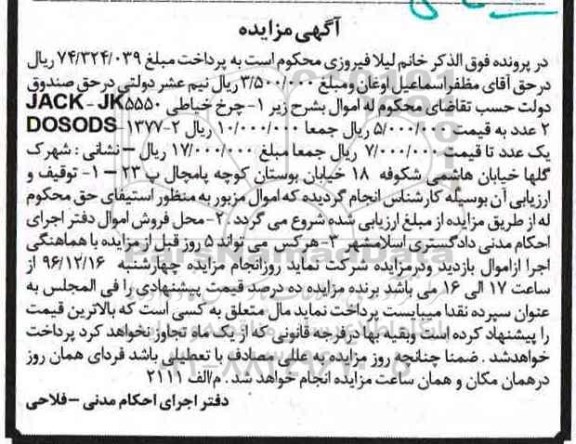 آگهی مزایده
در پرونده فوق الذکر خانم لیلا فیروزی محکوم است به پرداخت مبلغ ۷۴/۳۲۴/۰۳۹ ریال
درحق آقای مظفر اسماعیل اوغان ومبلغ ۳/۵۰۰/۰۰۰ ریال نیم عشر دولتی درحق صندوق
دولت حسب تقاضای محکوم له اموال بشرح زیر ۱- چرخ خیاطی JACK - JK۵۵۵۰
۲ عدد به قیمت ۵/۰۰۰/۰۰۰ ریال جمعا ۱۰/۰۰۰/۰۰۰ ریال ۲-۱۳۷۷-DOSODS
یک عدد تا قیمت ۷/۰۰۰/۰۰۰ ریال جمعا مبلغ ۱۷/۰۰۰/۰۰۰ ریال – نشانی : شهرک
گلها خیابان هاشمی شکوفه ۱۸ خیابان بوستان کوچه پامچال پ ۲۳ – ۱- توقیف و
ارزیابی آن بوسیله کارشناس انجام گردیده که اموال مزبور به منظور استیفای حق محکوم
له از طریق مزایده از مبلغ ارزیابی شده شروع می گردد . ۲- محل فروش اموال دفتر اجرای
احکام مدنی دادگستری اسلامشهر ۳- هرکس می تواند ۵ روز قبل از مزایده با هماهنگی
اجرا ازاموال بازدید ودرمزایده شرکت نماید روزانجام مزایده چهارشنبه ۹۶/۱۲/۱۶ از
ساعت ۱۷ الی ۱۶ می باشد برنده مزایده ده درصد قیمت پیشنهادی را فی المجلس به
عنوان سپرده نقدا میبایست پرداخت نماید مال متعلق به کسی است که بالاترین قیمت
را پیشنهاد کرده است وبقیه بها درفرجه قانونی که از یک ماه تجاوز نخواهد کرد پرداخت
خواهدشد . ضمنا چنانچه روز مزایده به عللی مصادف با تعطیلی باشد فردای همان روز
درهمان مکان و همان ساعت مزایده انجام خواهد شد . م/الف ۲۱۱۱
دفتر اجرای احکام مدنی – فلاحی